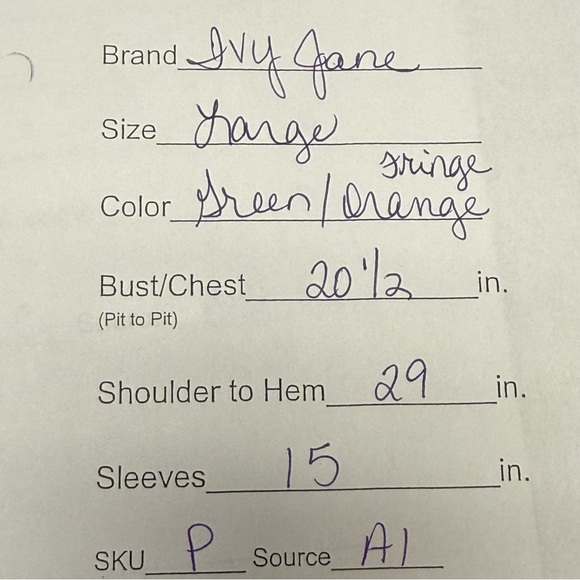 Brand Ivy Jane
Size Large
fringe
Color Green/Orange
Bust/Chest 20 1/2 in.
(Pit to Pit)
Shoulder to Hem 29 in.
Sleeves 15 in.
SKU P Source A1